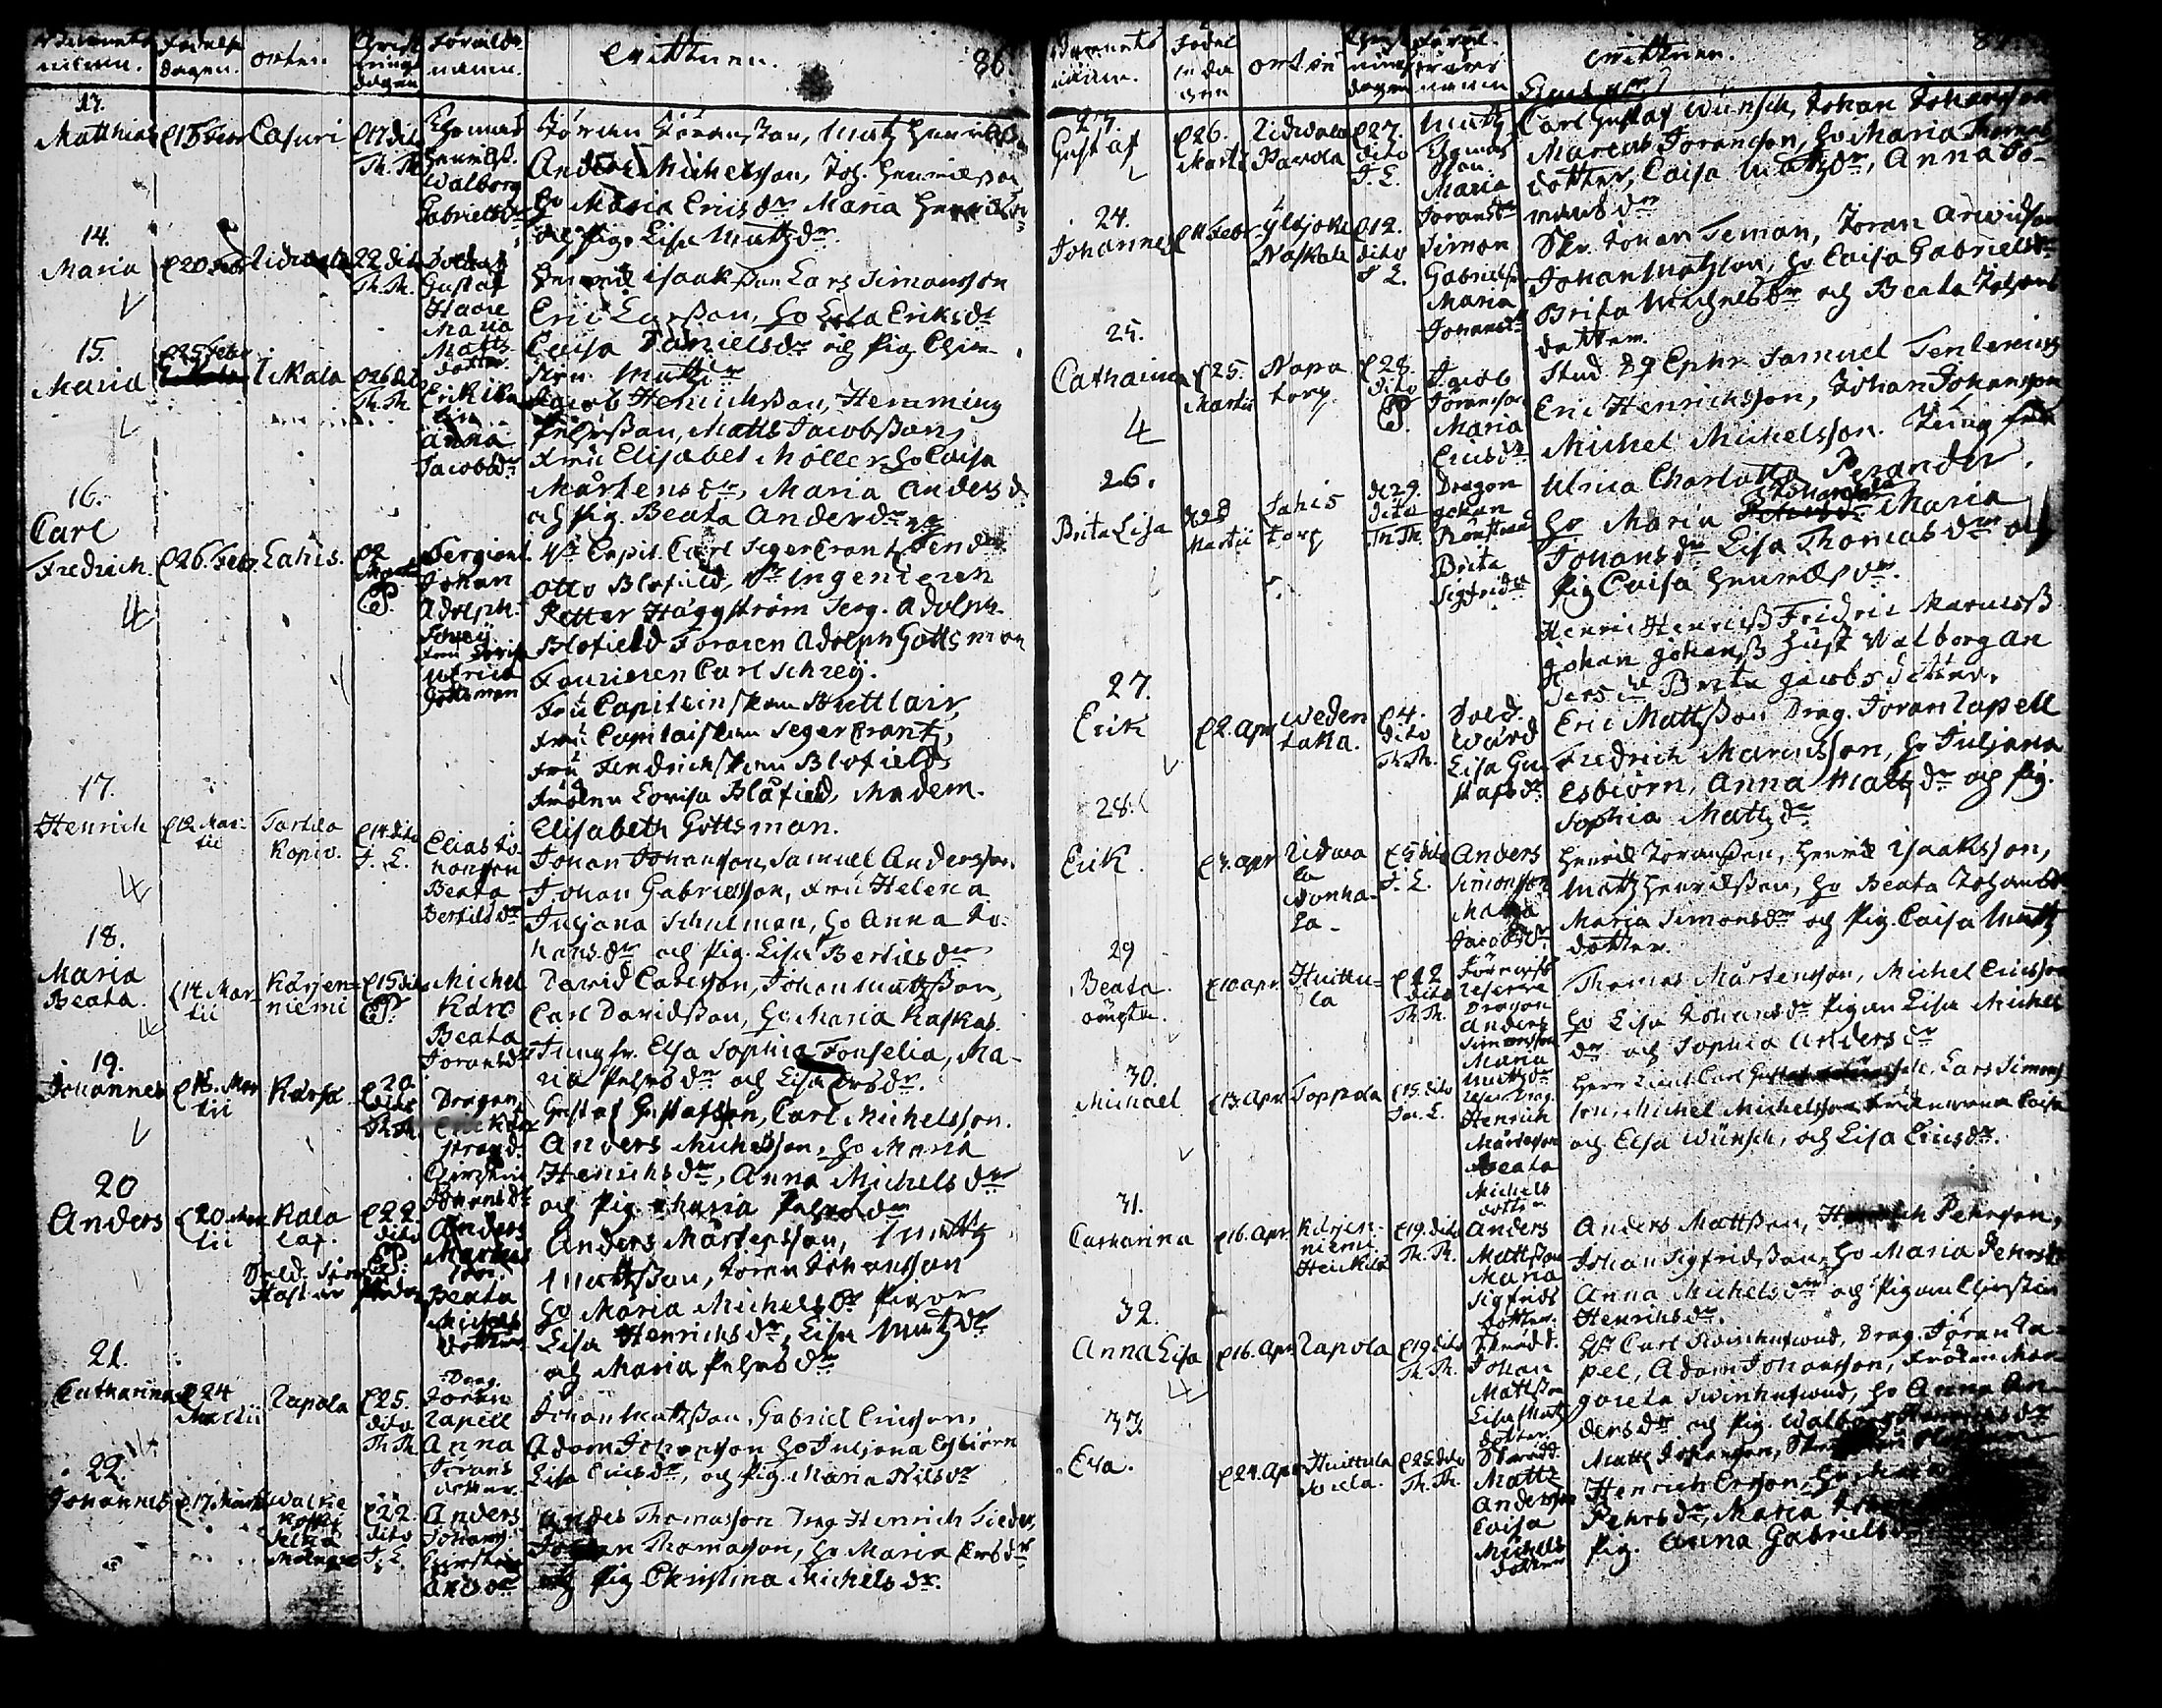 Barnets namn. Födelse dagen. orten. Christnings dagen Föräldr. namn. Wittnen. 86.
13.
Matthias d 15 Febr Casuri d 17 dito Th. Th.
Thomas
Henrichs.
Walborg
Gabrielsdr
Jöran Göransson, Matz Henrichss.
Anders Michelsson, Joh. Henricsson
ho Maria Ericsdr Maria Henricsdr
och Pig. Lisa Mattzdr.
14.
Maria d 20 Febr 22 dito Th. Th.
Soldat
Gustaf
Haare
Maria
Matts
dotter.
Henric Isaaksson Lars Simonsson
Eric Larsson, ho Lisa Eriksdr
Caisa Danielsdr och Pig. Chir-
stin Mattsdr
15.
Maria d 25 Febr Ukala d 26 dito Th. Th
Erik
Anna
Jacobsdr
Jacob Henrichsson, Hemming
Pehrsson, Matts Jacobsson,
Fru Elisabet Möller, ho Caisa
Mårtensdr, Maria Andersd
och Pig. Beata Andersdr
16.
Carl
Fredrich. d 26. Febr Lahis. d 2
Sergiant
Johan
Adolph
Schreij
Fru Lovisa
Ulrica
Gottsman
Capit. Carl Segercrantz Fendr.
Otto Blofield, Hr Ingenieren
Petter Häggström Serg. Adolph
Blofield Foraren Adolph Gottsman
Fourieren Carl Schreij.
Fru Capiteinskan Buttlair,
Fru Capitainskan Segercrantz,
Fru Fendrichskan Blofield,
Fröken Lovisa Blåfield, Madem.
Elisabeth Gottsman.
17.
Henrich d 12 Martii Tartila Kopio. d 14 dito J. E.
Elias Johansson
Beata
Bertilsdr
Johan Johansson, Samuel Andersson.
Johan Gabrielsson, Fru Helena
Juljana Schulman, ho Anna Johansdr
och Pig. Lisa Bertilsdr
18.
Maria
Beata. d 14 Martii Kärjenniemi d 15 dito
Michel
Karo
Beata
Joransdr
David Carlsson, Johan Mattsson,
Carl Davidsson, ho Maria Kaskas.
Jungfr. Elsa Sophia Fonselia, Ma-
ria Pehrsdr och Lisa Ersdr.
19.
Johannes d 18. Martii Kärsä d 20 dito Th. Th.
Dragon
strand.
Chirstin
Johansdr
Gustaf Gustafsson, Carl Michelsson.
Anders Michelsson, ho Maria
Henrichsdr, Anna Michelsdr
och Pig. Maria Pehrsdr
20
Anders d 20. Martii Kalalax. d 22. dito
Anders
Markus
son.
Beata
Michels
dotter
Anders Mårtensson, Matts
Mattsson, Jöran Johansson
ho Maria Michelsdr Pigor
Lisa Henrichsdr, Lisa Matzdr
och Maria Pehrsdr
21.
Catharina d 24 Martii Zapola d 25. dito Th. Th.
Drag.
Jöran
Zapell
Anna
Jörans
dotter.
Johan Mattsson, Gabriel Ericsson,
Adam Johansson ho Juljana Esbiörn
Lisa Ericsdr, och Pig. Maria Nilsdr
22.
Johannes d 17 Martii d 22. dito J. E.
Anders
Johans
Chirstin
Andersdr
Anders Thomasson Drag Henrich
Johan Thomasson, ho Maria Ersdr
och Pig Christina Michelsdr.
Barnets namn. Födelsedagen orten Christnings dagen Föräldrarnes namn Wittnen.
23.
Gustaf d 26. Martii Zidwala Pavola d 27. dito J. E.
Matz
Thomas
son
Maria
Joransdr
Carl Gustaf Wünsch, Johan Johansson
Marcus Joransson, ho Maria Thomas
dotter, Caisa Mattsdr, Anna To-
masdr
24.
Johannes d 11 Febr Yltjoki Naskala d 12. dito J. E.
Simon
Gabrielss
Maria
Johansdr
Skr. Johan Teman, Joran Arvidsson
Johan Matzson, ho Caisa Gabrielsdr
Brita Michelsdr och Beata Johans
dotter.
25.
Catharina d 25. Martii Napa torp. d 28. dito
Jacob
Jöransson
Maria
Ericsdr
Stud. Ephr. Samuel Tenlenius
Eric Henricksson, Johan Johansson
Michel Michelsson. Jungfr
Ulrica Charlotta Perander.
ho Maria Johansdr Maria
Johansdr Lisa Thomasdr och
Pig Caisa Henricsdr.
26.
Brita Lisa d 28 Martii Lahis torp d 29. dito Th. Th.
Dragon
Johan
Brita
Sigfridsdr
Henric Henricss Fridric Marcuss
Johan Johanss hust Walborg An
dersdr Brita Jacobsdotter.
27.
Erik d 2. Apr d 4. dito Th. Th.
Sold.
Wård
Lisa Gu-
stafsdr
Eric Mattsson Drag. Joran Zapell
Fredrich Marcusson, ho Juljana
Esbiörn, Anna Mattsdr och Pig.
Sophia Matzdr
28.
Erik. d 3. Apr Zidwala d 5 dito J. E.
Anders
Simonsson
Maria
Jacobsdr
Henric Joransson, Henric Isaaksson,
Matts Henricsson, ho Beata Johansdr
Maria Simonsdr och Pig. Caisa Matts
dotter.
29
Beata d 10 Apr. Huittula d 12 dito Th. Th.
Reserve
Dragon
Anders
Simonsson
Maria
Mattsdr
Thomas Mårtensson, Michel Ericsson
ho Lisa Johansdr Pigan Lisa Michels
dr och Sophia Andersdr
30.
Michael d 13. Apr. Toppola d 15. dito
Henrich
Mårtensson
Beata
Michels
dotter
Herr Lieut. Carl Gustaf Lars Simons
son, Michel Michelsson Caisa
och Elsa Wünsch, och Lisa Ericsdr.
31.
Catharina d 16. Apr. Kärjenniemi Heickilä d 19. dito Th. Th.
Anders
Mattsson
Maria
Sigfrids
dotter.
Anders Mattsson, Henrich Pehrsson,
Johan Sigfridsson, ho Maria Pehrsdr
Anna Michelsdr och Pigan Chirstin
Henrichsdr.
32.
Anna Lisa d 16. Apr. Zapola d 19 dito Th. Th.
Johan
Mattsson
Lisa Matts
dotter.
Carl Swinhufwud, Drag. Jöran Za-
pel, Adam Johansson, Fröken Mar-
gareta Swinhufwud, ho Anna An-
dersdr och Pig. Walborg Henricsdr
33.
Eva. d 24. Apr. Huittula d 25. dito Th. Th.
Matts
Andersson
Caisa
Michels
dotter
Matts Johansson,
Henrich Ersson, ho Maria
Pehrsdr, Maria
Pig. Anna Gabrielsdr